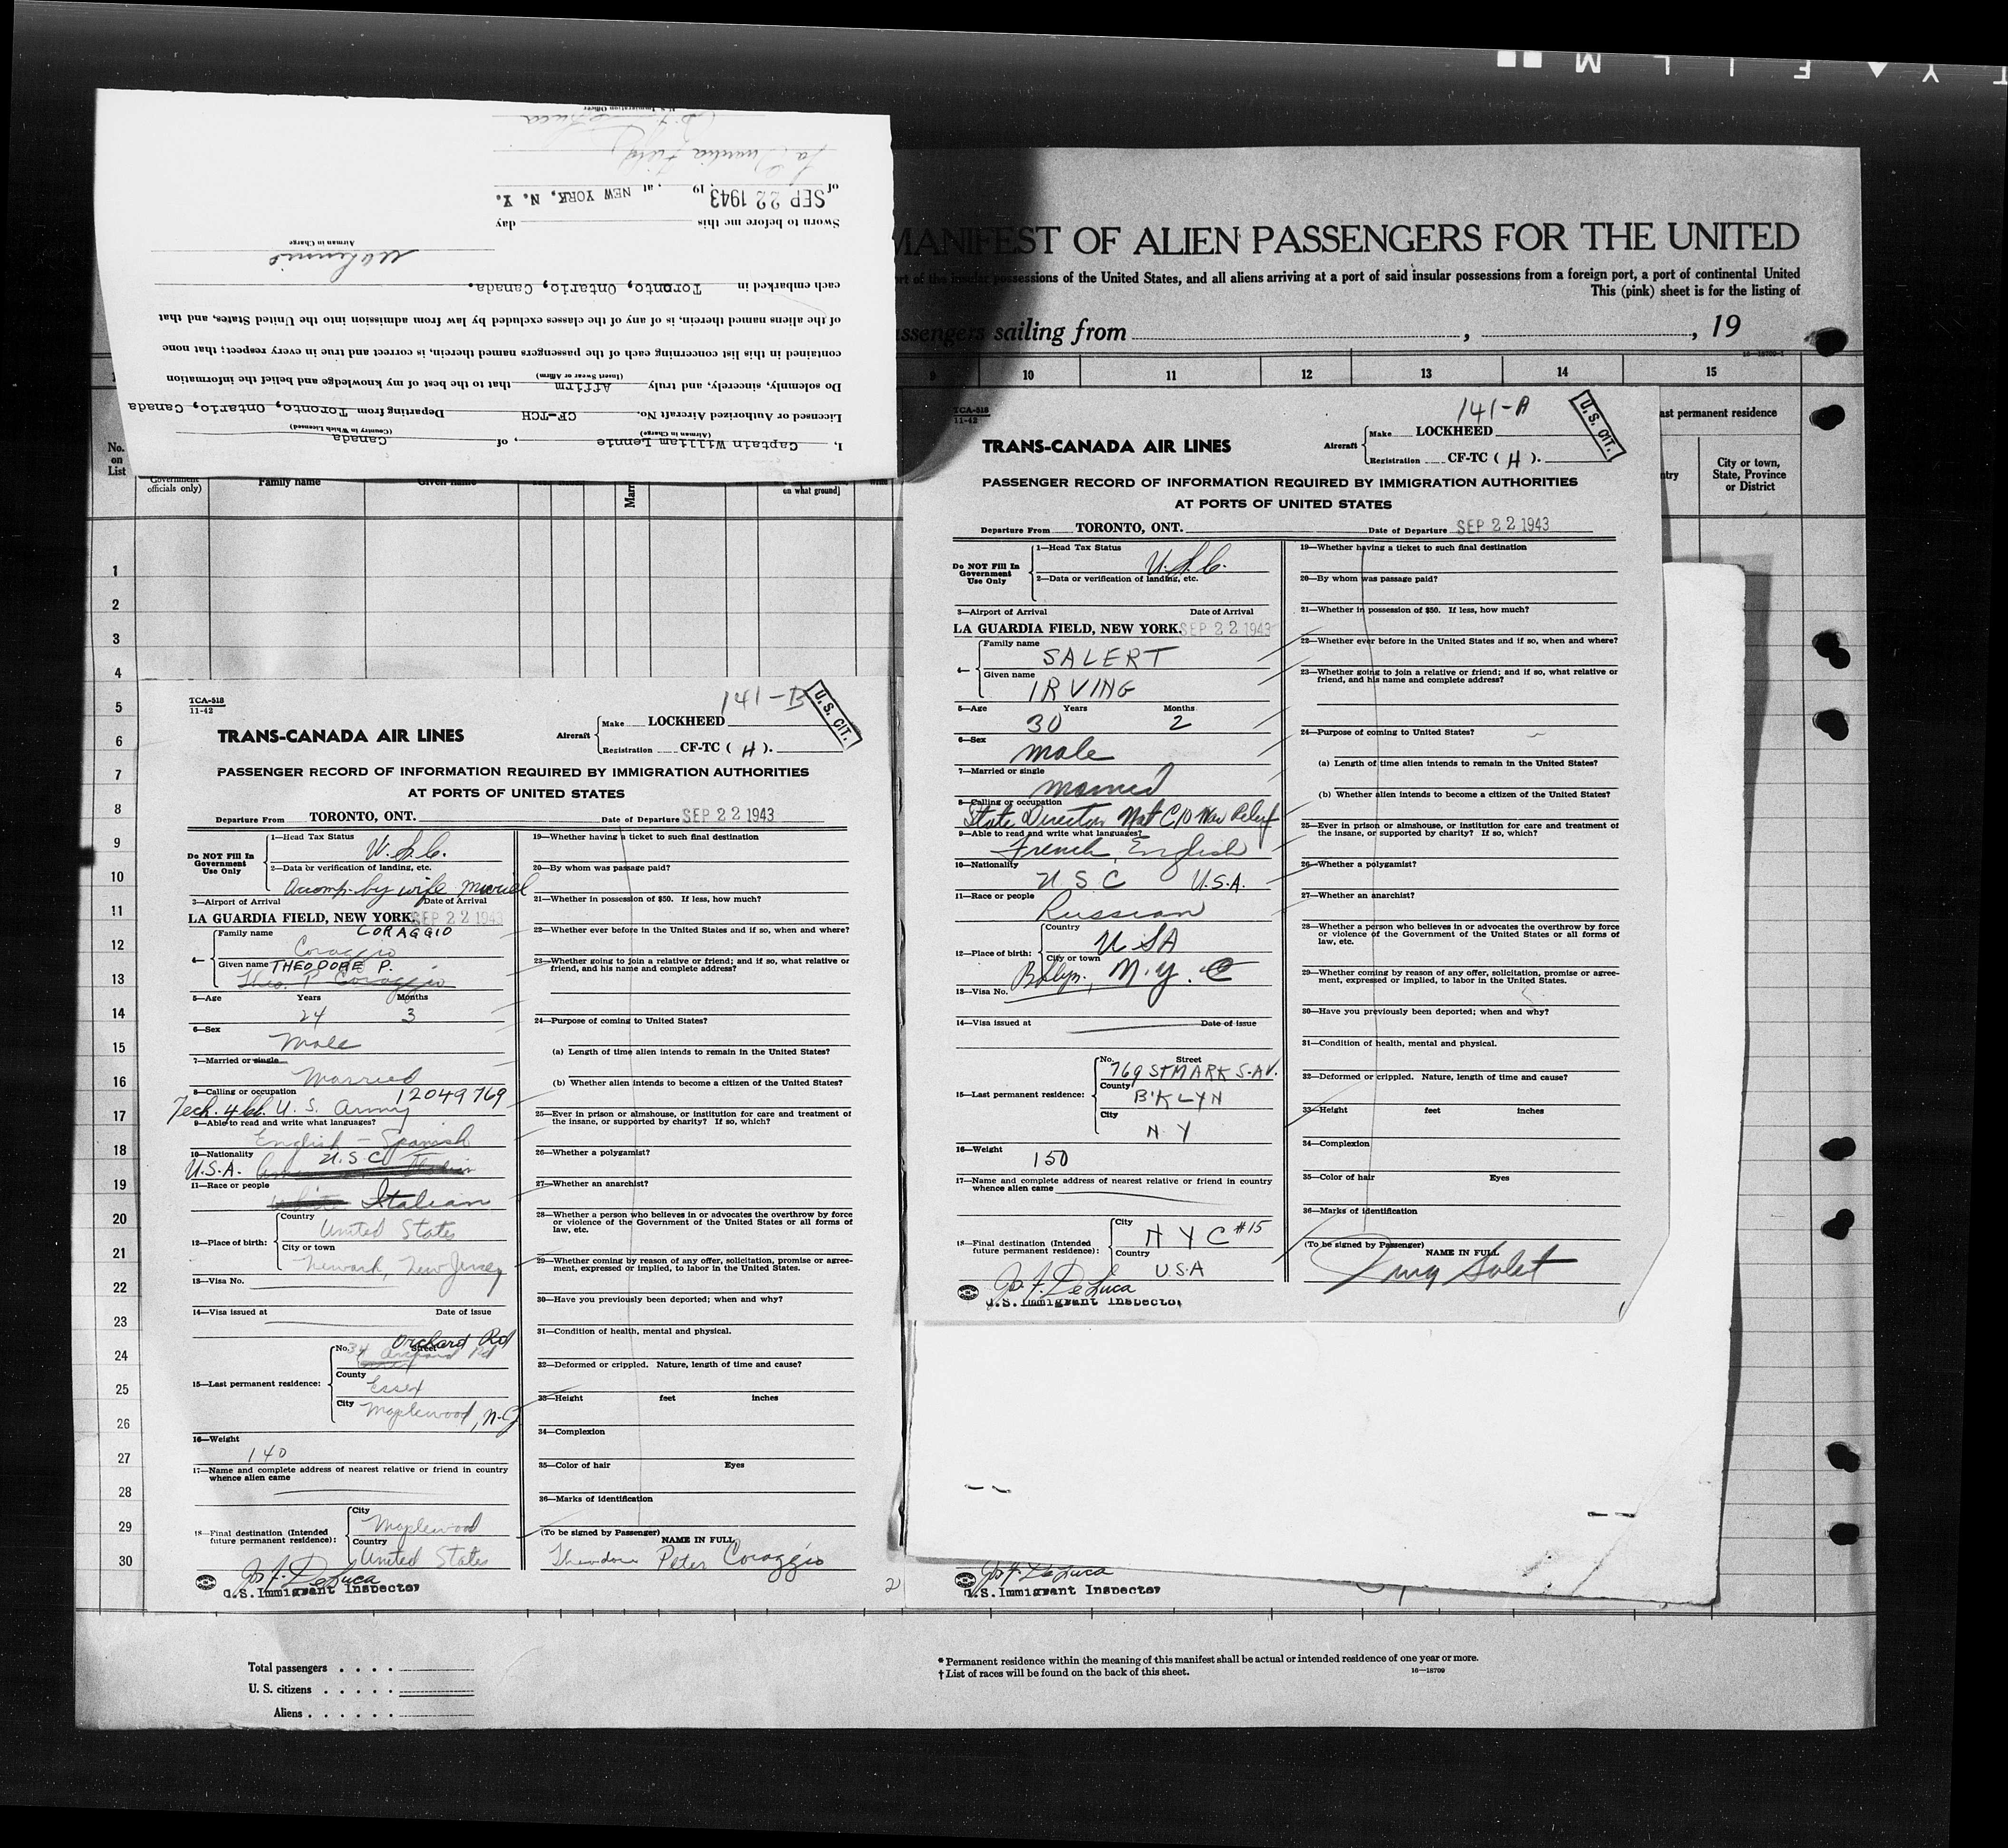 YFILM
I, Captain William Lennie, of Canada
(Airman in Charge) (Country in Which Licensed)
Licensed or Authorized Aircraft No. CF-TCH Departing from Toronto, Ontario, Canada
Do solemnly, sincerely, and truly Affirm that to the best of my knowledge and belief the information
(Insert Swear or Affirm)
contained in this list concerning each of the passengers named therein, is correct and true in every respect; that none
of the aliens named therein, is of any of the classes excluded by law from admission into the United States, and that
each embarked in Toronto, Ontario, Canada.
Airman in Charge
Sworn to before me this day
of SEP 22 1943, 19 , at NEW YORK, N. Y.
La Guardia Field
U.S. Immigration Officer
MANIFEST OF ALIEN PASSENGERS FOR THE UNITED
port of the insular possessions of the United States, and all aliens arriving at a port of said insular possessions from a foreign port, a port of continental United
This (pink) sheet is for the listing of
assengers sailing from , , 19
16—18709-1
9 10 11 12 13 14 15
No. on List
Government officials only)
Family name
Given name
on what ground]
ast permanent residence
ntry
City or town, State, Province or District
1
2
3
4
5
6
7
8
9
10
11
12
13
14
15
16
17
18
19
20
21
22
23
24
25
26
27
28
29
30
TCA-518
11-42
141-B
U. S. CIT.
TRANS-CANADA AIR LINES
Aircraft
Make LOCKHEED
Registration CF-TC ( H ).
PASSENGER RECORD OF INFORMATION REQUIRED BY IMMIGRATION AUTHORITIES
AT PORTS OF UNITED STATES
Departure From TORONTO, ONT. Date of Departure SEP 22 1943
Do NOT Fill In Government Use Only
1—Head Tax Status
U.S.C.
2—Data or verification of landing, etc.
Accomp. by wife Muriel
3—Airport of Arrival Date of Arrival
LA GUARDIA FIELD, NEW YORK. SEP 22 1943
4— Family name CORAGGIO
Coraggio
Given name THEODORE P.
Theo. P Coraggio
5—Age Years Months
24 3
6—Sex
Male
7—Married or single
Married
8—Calling or occupation 12049769
Tech. 4 U. S. Army
9—Able to read and write what languages?
English - Spanish
10—Nationality U.S.C.
U.S.A.
11—Race or people
Italian
12—Place of birth:
Country
United States
City or town
Newark, New Jersey
13—Visa No.
14—Visa issued at Date of issue
15—Last permanent residence:
No. 34 Street Orchard Rd
Orchard Rd
County
Essex
City
Maplewood, N.J.
16—Weight
140
17—Name and complete address of nearest relative or friend in country whence alien came
18—Final destination (Intended future permanent residence):
City
Maplewood
Country
United States
Jos. F. DeLuca
U.S. Immigrant Inspector
19—Whether having a ticket to such final destination
20—By whom was passage paid?
21—Whether in possession of $50. If less, how much?
22—Whether ever before in the United States and if so, when and where?
23—Whether going to join a relative or friend; and if so, what relative or friend, and his name and complete address?
24—Purpose of coming to United States?
(a) Length of time alien intends to remain in the United States?
(b) Whether alien intends to become a citizen of the United States?
25—Ever in prison or almshouse, or institution for care and treatment of the insane, or supported by charity? If so, which?
26—Whether a polygamist?
27—Whether an anarchist?
28—Whether a person who believes in or advocates the overthrow by force or violence of the Government of the United States or all forms of law, etc.
29—Whether coming by reason of any offer, solicitation, promise or agreement, expressed or implied, to labor in the United States.
30—Have you previously been deported; when and why?
31—Condition of health, mental and physical.
32—Deformed or crippled. Nature, length of time and cause?
33—Height feet inches
34—Complexion
35—Color of hair Eyes
36—Marks of identification
(To be signed by Passenger)
NAME IN FULL
Theodore Peter Coraggio
TCA-518
11-42
141-A
U. S. CIT.
TRANS-CANADA AIR LINES
Aircraft
Make LOCKHEED
Registration CF-TC ( H ).
PASSENGER RECORD OF INFORMATION REQUIRED BY IMMIGRATION AUTHORITIES
AT PORTS OF UNITED STATES
Departure From TORONTO, ONT. Date of Departure SEP 22 1943
Do NOT Fill In Government Use Only
1—Head Tax Status
U.S.C.
2—Data or verification of landing, etc.
3—Airport of Arrival Date of Arrival
LA GUARDIA FIELD, NEW YORK. SEP 22 1943
4— Family name
SALERT
Given name
IRVING
5—Age Years Months
30 2
6—Sex
male
7—Married or single
married
8—Calling or occupation
State Director Nat CIO War Relief
9—Able to read and write what languages?
French, English
10—Nationality
U S C U.S.A.
11—Race or people
Russian
12—Place of birth:
Country
USA
City or town
Bklyn, N.Y. C
13—Visa No.
14—Visa issued at Date of issue
15—Last permanent residence:
No. Street
769 ST MARKS AV.
County
B'KLYN
City
N Y
16—Weight
150
17—Name and complete address of nearest relative or friend in country whence alien came
18—Final destination (Intended future permanent residence):
City
N Y C #15
Country
U.S.A
Jos. F. DeLuca
U.S. Immigrant Inspector
19—Whether having a ticket to such final destination
20—By whom was passage paid?
21—Whether in possession of $50. If less, how much?
22—Whether ever before in the United States and if so, when and where?
23—Whether going to join a relative or friend; and if so, what relative or friend, and his name and complete address?
24—Purpose of coming to United States?
(a) Length of time alien intends to remain in the United States?
(b) Whether alien intends to become a citizen of the United States?
25—Ever in prison or almshouse, or institution for care and treatment of the insane, or supported by charity? If so, which?
26—Whether a polygamist?
27—Whether an anarchist?
28—Whether a person who believes in or advocates the overthrow by force or violence of the Government of the United States or all forms of law, etc.
29—Whether coming by reason of any offer, solicitation, promise or agreement, expressed or implied, to labor in the United States.
30—Have you previously been deported; when and why?
31—Condition of health, mental and physical.
32—Deformed or crippled. Nature, length of time and cause?
33—Height feet inches
34—Complexion
35—Color of hair Eyes
36—Marks of identification
(To be signed by Passenger)
NAME IN FULL
Irving Salert
Jos. F. DeLuca
U.S. Immigrant Inspector
Total passengers
U. S. citizens
Aliens
* Permanent residence within the meaning of this manifest shall be actual or intended residence of one year or more.
† List of races will be found on the back of this sheet.
16—18709